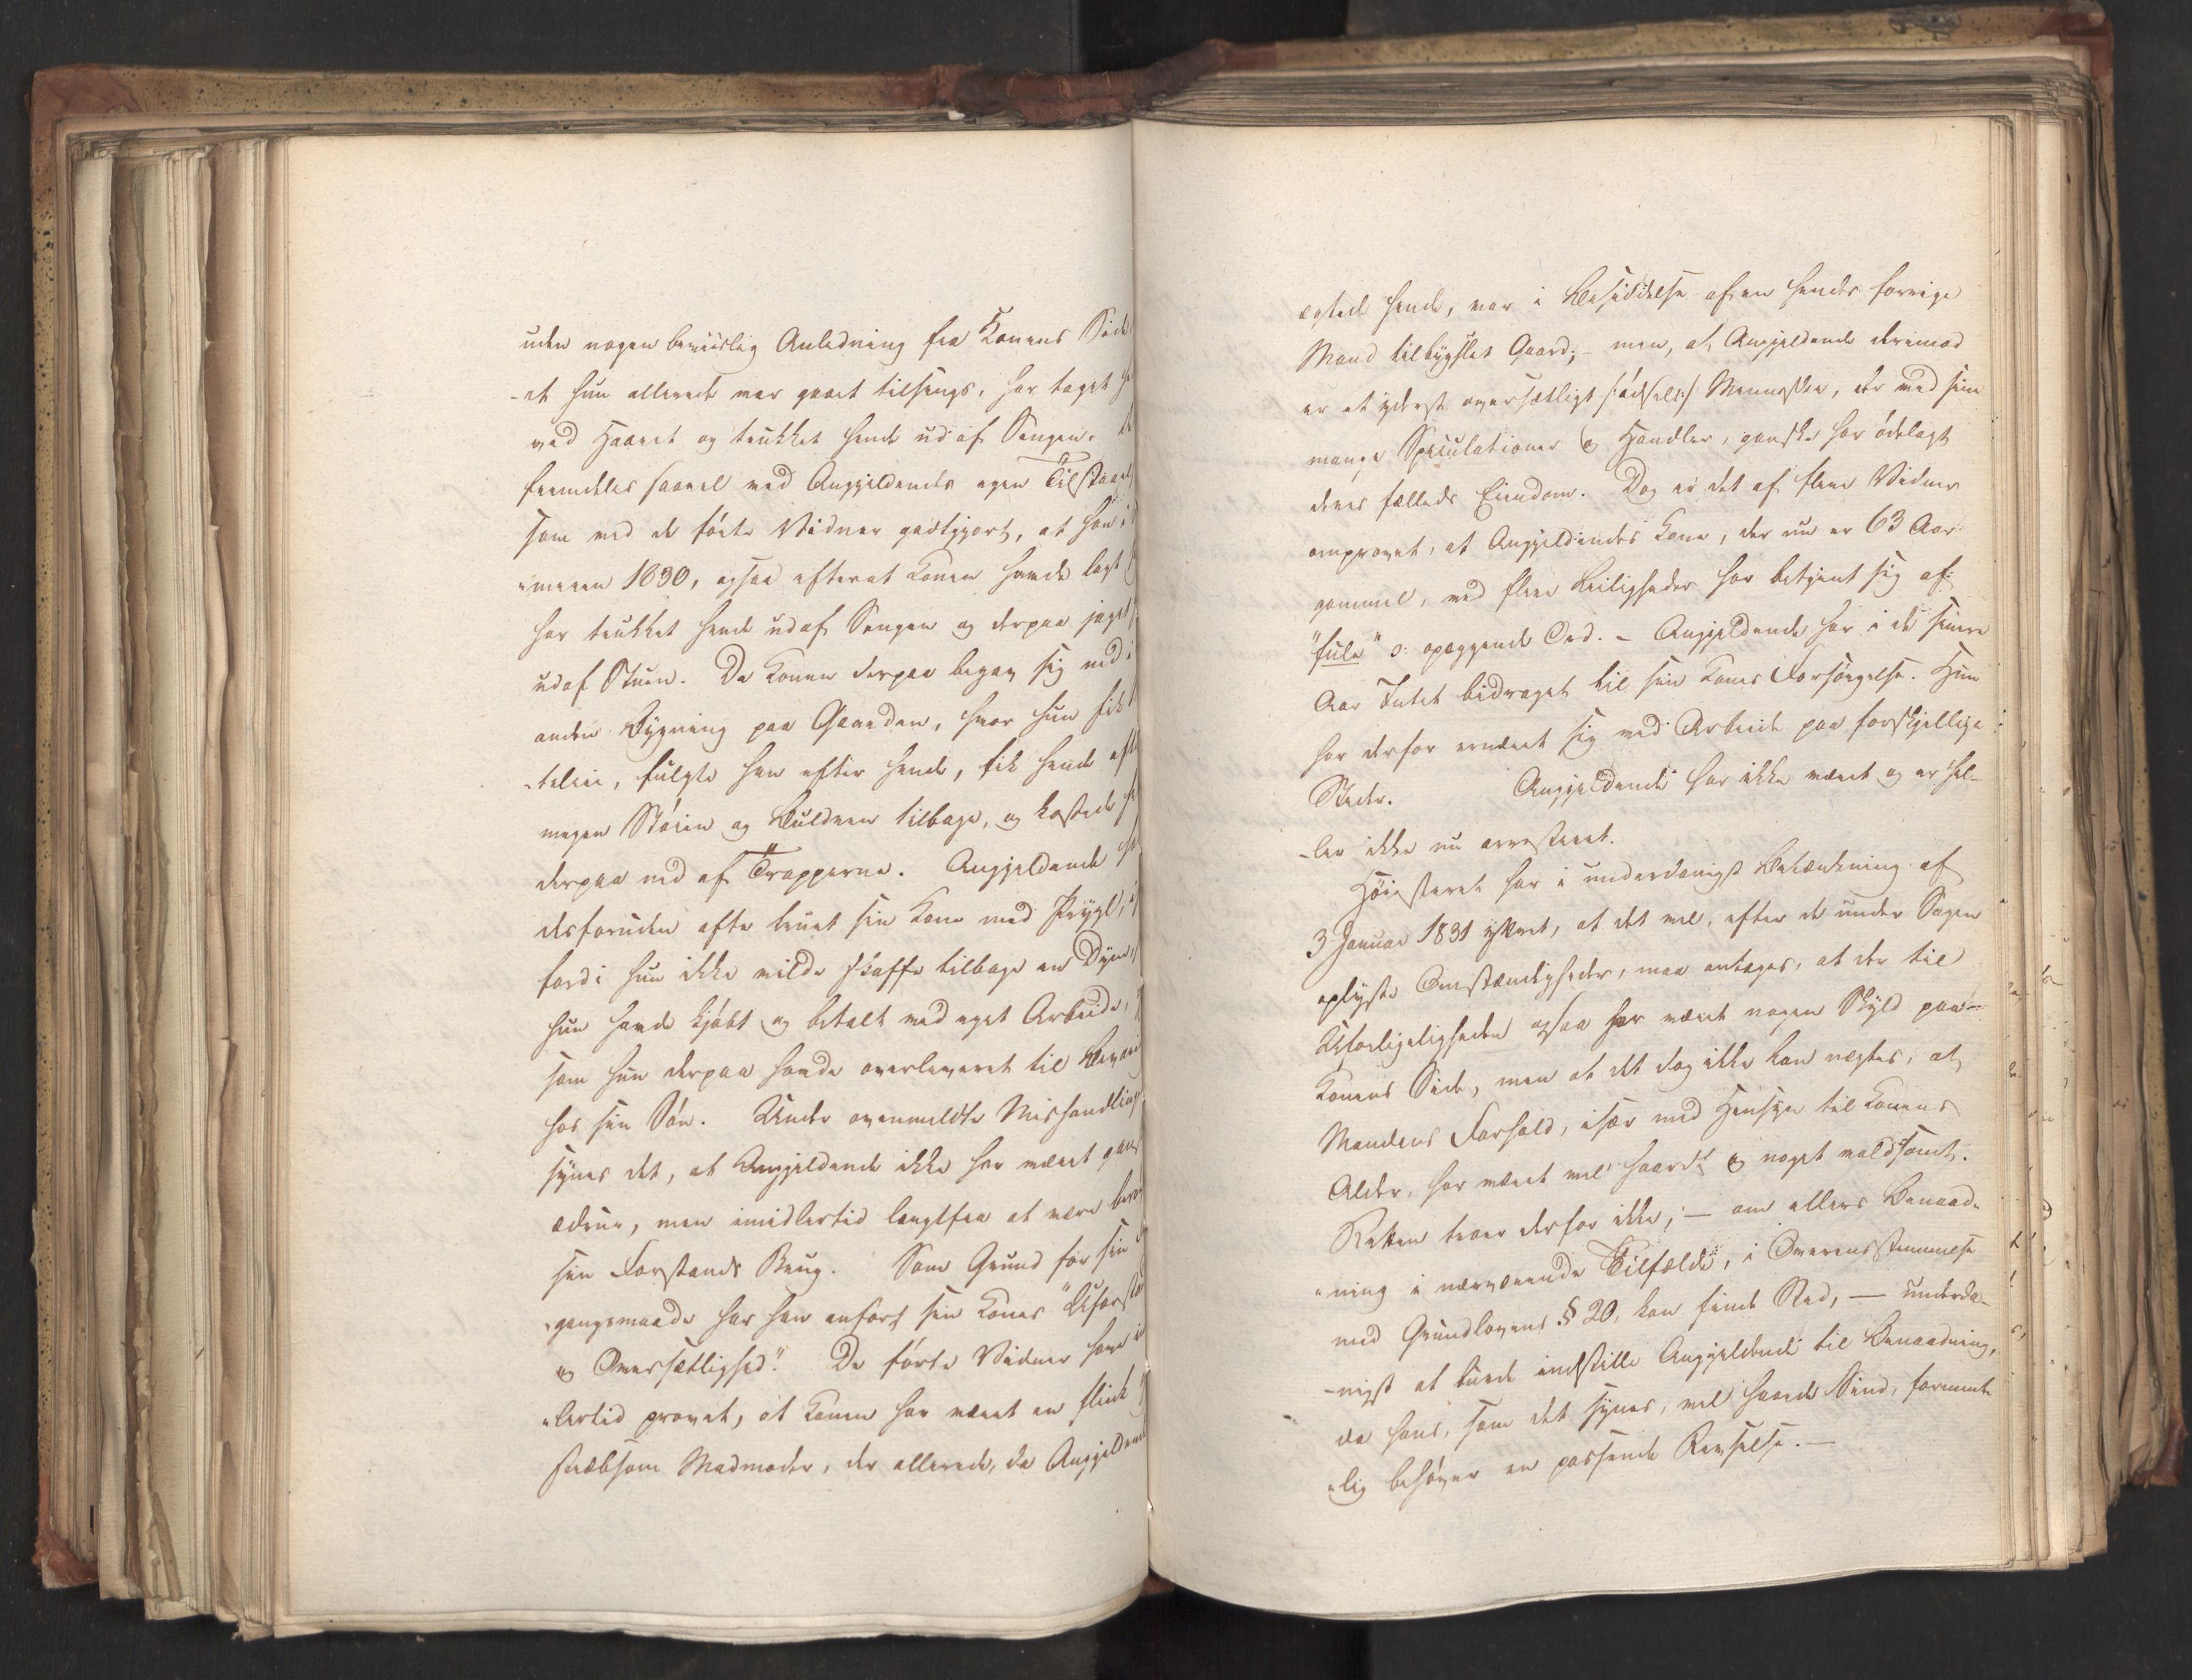 uden nogen beviislig Anledning fra Konens Side
-at hun allerede var gaaet tilsengs, har taget
ved Haaret og trukket hende ud af Sengen.
fremdeles saavel ved Angjeldendes egen Tilstaael
som ved de førte Vidner godtgjort, at han i
-meren 1830, ogsaa efterat Konen havde lagt
har trukket hende ud af Sengen og derpaa jaget
ud af Stuen. Da Konen derpaa begav sig ned i
anden Bygning paa Gaarden, hvor hun fik
-telaie, fulgte han efter hende, fik hende eft
megen Støien og Buldren tilbage, og kastede
derpaa ned af Trapperne. Angjeldende
desforuden ofte truet sin Kone med Prygl,
fordi hun ikke vilde skaffe tilbage en Dyne,
hun havde kjøbt og betalt med eget Arbeide,
som hun derpaa havde overleveret til Bevaring
hos sin Søn. Under ovenmeldte Mishandling
synes det, at Angjeldende ikke har været gans
ædrue, men imidlertid langtfra at være berø
sin Forstands Brug. Som Grund for sin
-gangsmaade har han anført sin Kones "Uforst
og Oversætlighed." De førte Vidner have i
-lertid provet, at Konen har været en flink
stræbsom Madmoder, der allerede, da Angjeldende
ægtede hende, var i Besiddelse af en hendes forrige
Mand tilbygslet Gaard; - men, at Angjeldende derimod
er et yderst oversætligt /:ødsel:/ Menneske, der med sine
mange Speculationer og Handler, ganske har ødelagt
deres fælleds Eiendom. Dog er det af flere Vidner
omprovet, at Angjeldendes Kone, der nu er 63 Aar
gammel, ved flere Leiligheder har betjent sig af
"fule" ɔ: opæggende Ord. - Angjeldende har i de senere
Aar Intet bidraget til sin Kones Forsørgelse. Hun
har derfor ernæret sig med Arbeide paa forskjellige
Steder. Angjeldende har ikke været og er hel-
-ler ikke nu arresteret.
Høiesteret har i underdanigst Betænkning af
3 Januar 1831 yttret, at det vel, efter de under Sagen
oplyste Omstændigheder, maa antages, at der til
Uforligeligheden ogsaa har været nogen Skyld paa
Konens Side, men at det dog ikke kan nægtes, at
Mandens Forhold, især med Hensyn til Konens
Alder, har været vel haardt og noget voldsomt.
Retten troer derfor ikke, — om ellers Benaad-
-ning i nærværende Tilfælde, i Overensstemmelse
med Grundlovens § 20, kan finde Sted, — underda-
-nigst at burde indstille Angjeldende til Benaadning,
da hans, som det synes, vel haarde Sind, forment-
-lig behøver en passende Revselse. —